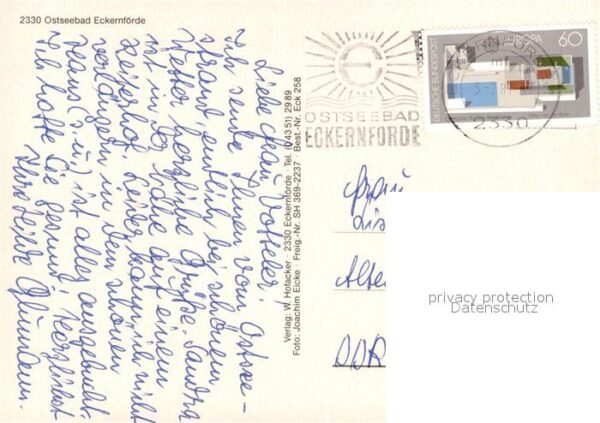 2330 Ostseebad Eckernförde
Liebe Frau Votteler!
Ich sende Ihnen vom Ostsee-
strand, bei schönem
Wetter herzliche Grüße. Sandra
ist in der Nähe auf einem
Reiterhof. Leider kann ich nicht
verlängern in dem schönen
Haus, ist alles ausgebucht.
Ich hoffe Sie gesund, herzlichst
Ihre
Verlag: W. Hofacker · 2330 Eckernförde · Tel. (0 43 51) 29 89
Foto: Joachim Eicke · Freig.-Nr. SH 369-2237 · Best.-Nr. Eck 258
OSTSEEBAD
ECKERNFÖRDE
DEUTSCHE BUNDESPOST
EUROPA
60
2330
Frau
Alten
DDR
privacy protection
Datenschutz